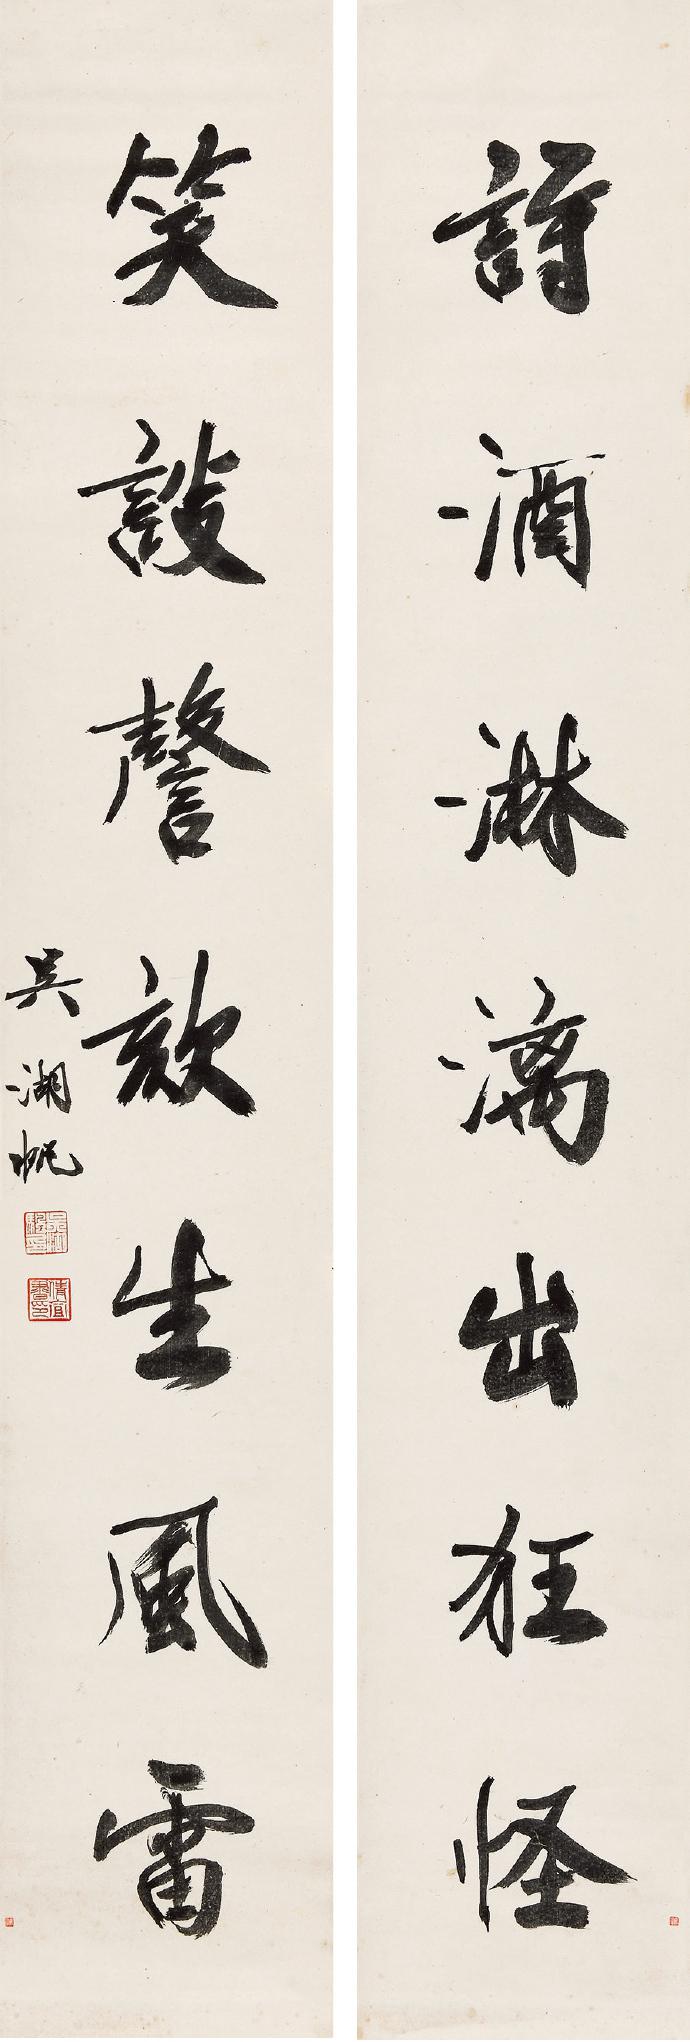 詩酒淋漓出狂怪
笑談謦欬生風雷
吳湖帆
吳湖颿印